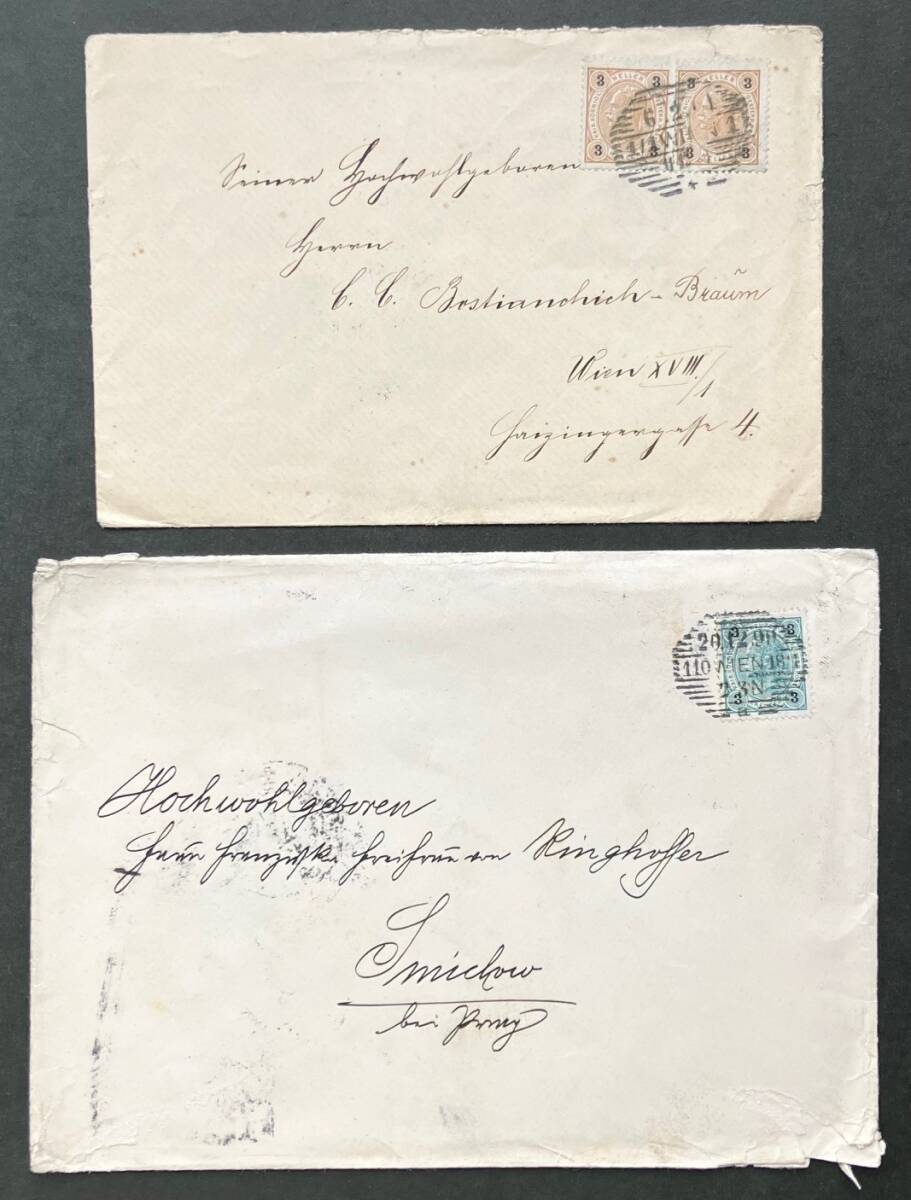 3 HELLER 3 3 3
3 3 3 3
6 2 1
Seiner Hochwohlgeboren
Herrn
C. C. Bostianchich-Braũm
Wien XVIII./1
Haizingergasse 4.
3 3
20.12.90
110 WIEN 18
2-3N
3 3
a
Hochwohlgeboren
Frau Franziska Freifrau von Ringhoffer
Smichow
bei Prag